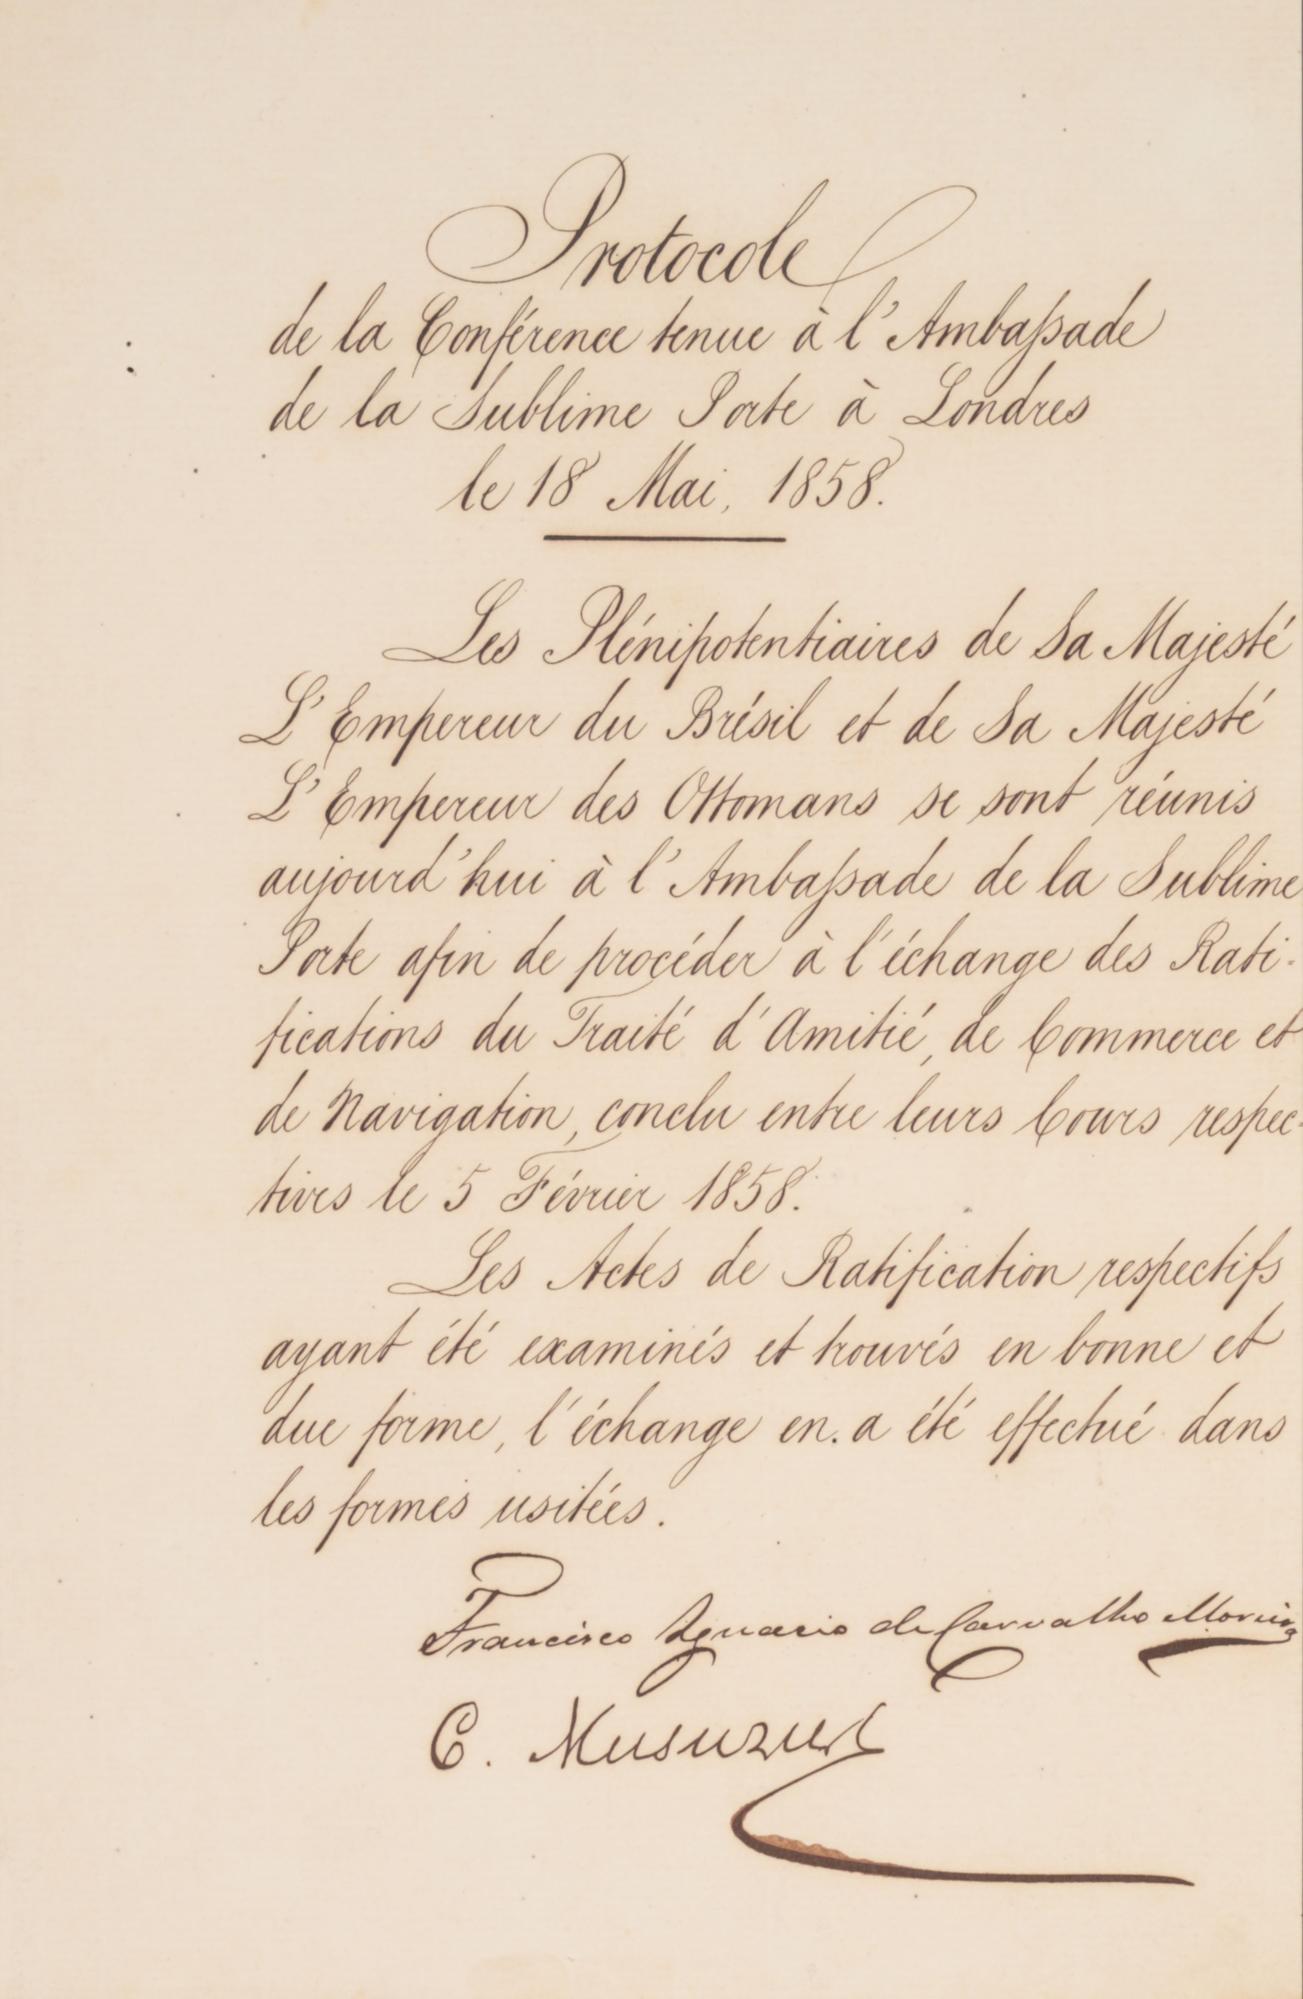 Protocole
de la Conférence tenue à l'Ambassade
de la Sublime Porte à Londres
le 18 Mai, 1858.
Les Plénipotentiaires de Sa Majesté
L'Empereur du Brésil et de Sa Majesté
L'Empereur des Ottomans se sont réunis
aujourd'hui à l'Ambassade de la Sublime
Porte afin de procéder à l'échange des Rati-
fications du Traité d'Amitié, de Commerce et
de Navigation, conclu entre leurs Cours respec-
tives le 5 Février 1858.
Les Actes de Ratification respectifs
ayant été examinés et trouvés en bonne et
due forme, l'échange en. a été effectué dans
les formes usitées.
Francisco Ignacio de Carvalho Moreira
C. Musurus